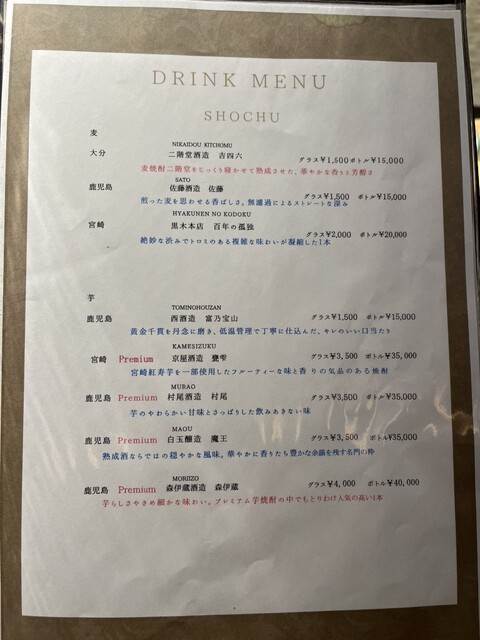 DRINK MENU
SHOCHU
麦
NIKAIDOU KITCHOMU
大分 二階堂酒造 吉四六 グラス¥1,500 ボトル¥15,000
麦焼酎二階堂をじっくり寝かせて熟成させた、華やかな香りと芳醇さ
SATO
鹿児島 佐藤酒造 佐藤 グラス¥1,500 ボトル¥15,000
煎った麦を思わせる香ばしさ。無濾過によるストレートな深み
HYAKUNEN NO KODOKU
宮崎 黒木本店 百年の孤独 グラス¥2,000 ボトル¥20,000
絶妙な渋みでトロミのある複雑な味わいが凝縮した1本
芋
TOMINOHOUZAN
鹿児島 西酒造 富乃宝山 グラス¥1,500 ボトル¥15,000
黄金千貫を丹念に磨き、低温管理で丁寧に仕込んだ、キレのいい口当たり
KAMESIZUKU
宮崎 Premium 京屋酒造 甕雫 グラス¥3,500 ボトル¥35,000
宮崎紅寿芋を一部使用したフルーティーな味と香りの気品のある焼酎
MURAO
鹿児島 Premium 村尾酒造 村尾 グラス¥3,500 ボトル¥35,000
芋のやわらかい甘味とさっぱりした飲みあきない味
MAOU
鹿児島 Premium 白玉醸造 魔王 グラス¥3,500 ボトル¥35,000
熟成酒ならではの穏やかな風味。華やかに香りたち豊かな余韻を残す名門の粋
MORIIZO
鹿児島 Premium 森伊蔵酒造 森伊蔵 グラス¥4,000 ボトル¥40,000
芋らしさやきめ細かな味わい。プレミアム芋焼酎の中でもとりわけ人気の高い1本